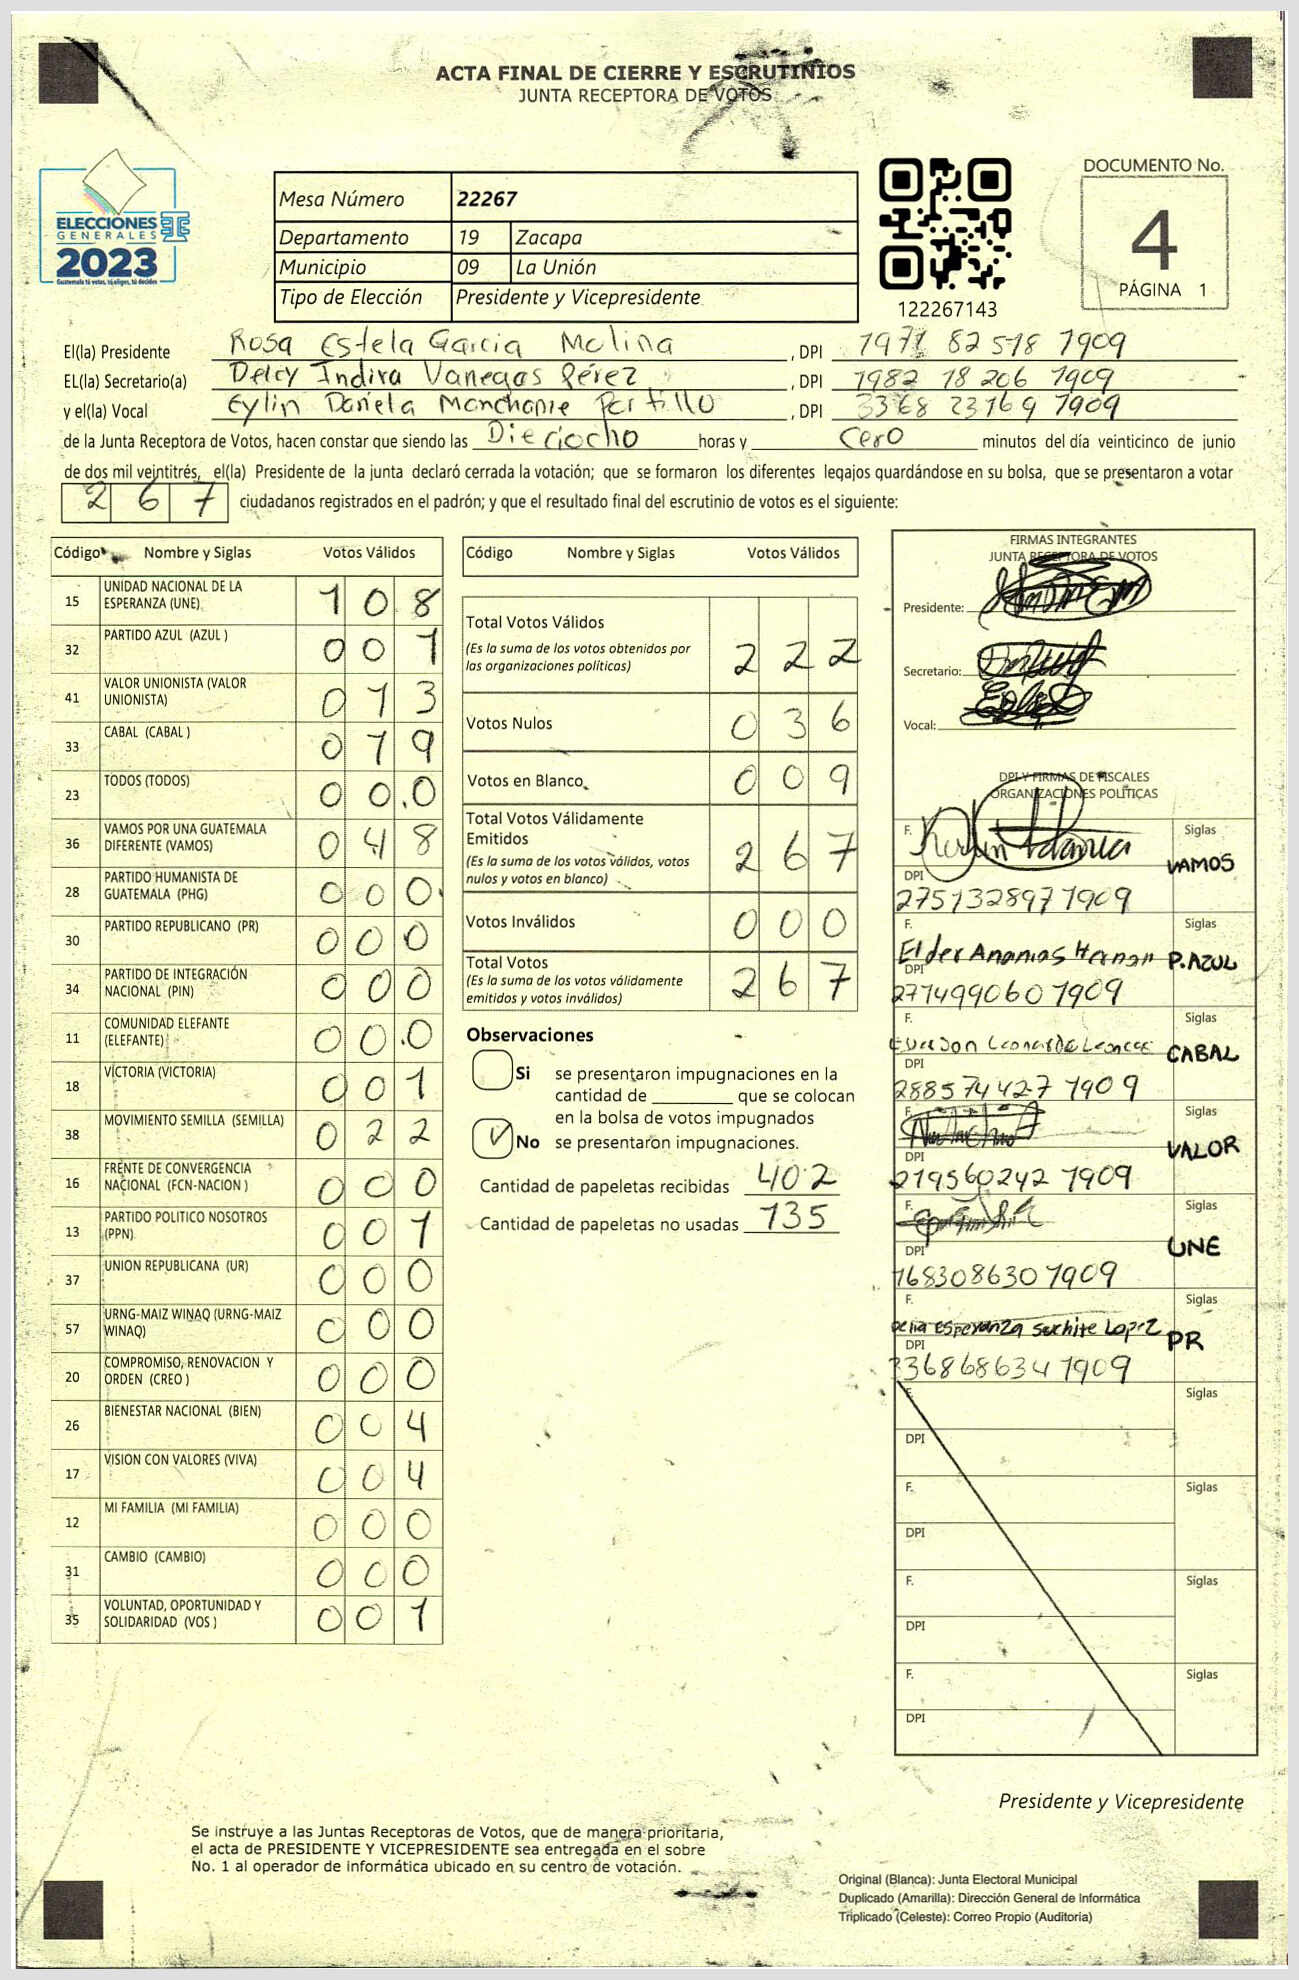 ACTA FINAL DE CIERRE Y ESCRUTINIOS
JUNTA RECEPTORA DE VOTOS
ELECCIONES
GENERALES
2023
Guatemala tú votas, tú eliges, tú decides
Mesa Número 22267
Departamento 19 Zacapa
Municipio 09 La Unión
Tipo de Elección Presidente y Vicepresidente
122267143
DOCUMENTO No.
4
PÁGINA 1
El(la) Presidente Rosa Estela Garcia Molina, DPI 1971 82518 1909
EL(la) Secretario(a) Delcy Indira Vanegas Pérez, DPI 1982 18206 1909
y el(la) Vocal Eylin Daniela Portillo, DPI 3368 23169 1909
de la Junta Receptora de Votos, hacen constar que siendo las Dieciocho horas y Cero minutos del día veinticinco de junio
de dos mil veintitrés, el(la) Presidente de la junta declaró cerrada la votación; que se formaron los diferentes legajos guardándose en su bolsa, que se presentaron a votar
267 ciudadanos registrados en el padrón; y que el resultado final del escrutinio de votos es el siguiente:
Código Nombre y Siglas Votos Válidos
15 UNIDAD NACIONAL DE LA ESPERANZA (UNE) 108
32 PARTIDO AZUL (AZUL ) 001
41 VALOR UNIONISTA (VALOR UNIONISTA) 013
33 CABAL (CABAL ) 019
23 TODOS (TODOS) 000
36 VAMOS POR UNA GUATEMALA DIFERENTE (VAMOS) 048
28 PARTIDO HUMANISTA DE GUATEMALA (PHG) 000
30 PARTIDO REPUBLICANO (PR) 000
34 PARTIDO DE INTEGRACIÓN NACIONAL (PIN) 000
11 COMUNIDAD ELEFANTE (ELEFANTE) 000
18 VICTORIA (VICTORIA) 001
38 MOVIMIENTO SEMILLA (SEMILLA) 022
16 FRENTE DE CONVERGENCIA NACIONAL (FCN-NACION ) 000
13 PARTIDO POLITICO NOSOTROS (PPN) 001
37 UNION REPUBLICANA (UR) 000
57 URNG-MAIZ WINAQ (URNG-MAIZ WINAQ) 000
20 COMPROMISO, RENOVACION Y ORDEN (CREO ) 000
26 BIENESTAR NACIONAL (BIEN) 004
17 VISION CON VALORES (VIVA) 004
12 MI FAMILIA (MI FAMILIA) 000
31 CAMBIO (CAMBIO) 000
35 VOLUNTAD, OPORTUNIDAD Y SOLIDARIDAD (VOS ) 001
Código Nombre y Siglas Votos Válidos
Total Votos Válidos 222
(Es la suma de los votos obtenidos por
las organizaciones políticas)
Votos Nulos 036
Votos en Blanco 009
Total Votos Válidamente
Emitidos 267
(Es la suma de los votos válidos, votos
nulos y votos en blanco)
Votos Inválidos 000
Total Votos 267
(Es la suma de los votos válidamente
emitidos y votos inválidos)
Observaciones
Si se presentaron impugnaciones en la
cantidad de ________ que se colocan
en la bolsa de votos impugnados
✓ No se presentaron impugnaciones.
Cantidad de papeletas recibidas 402
Cantidad de papeletas no usadas 135
FIRMAS INTEGRANTES
JUNTA RECEPTORA DE VOTOS
Presidente:
Secretario:
Vocal:
DPI Y FIRMAS DE FISCALES
ORGANIZACIONES POLÍTICAS
F. Siglas
VAMOS
DPI
275132897 1909
F. Elder Ananias Hernan Siglas
P.AZUL
DPI
277499060 1909
F. Siglas
CABAL
DPI
288574427 1909
F. Siglas
VALOR
DPI
219560242 1909
F. Siglas
UNE
DPI
168308630 1909
F. Delia esperanza suchite Lopez Siglas
PR
DPI
336868634 1909
F. Siglas
DPI
F. Siglas
DPI
F. Siglas
DPI
F. Siglas
DPI
Presidente y Vicepresidente
Se instruye a las Juntas Receptoras de Votos, que de manera prioritaria,
el acta de PRESIDENTE Y VICEPRESIDENTE sea entregada en el sobre
No. 1 al operador de informática ubicado en su centro de votación.
Original (Blanca): Junta Electoral Municipal
Duplicado (Amarilla): Dirección General de Informática
Triplicado (Celeste): Correo Propio (Auditoria)